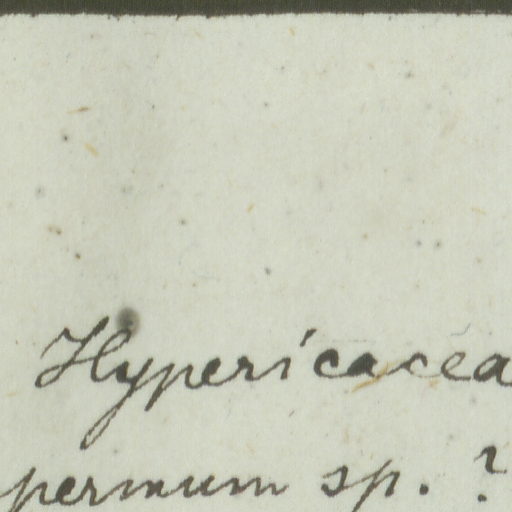 Hypericacea
permum sp. ?